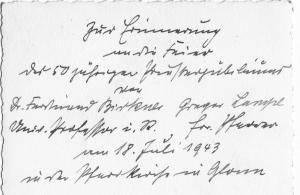 Zur Erinnerung
an die Feier
des 50 jährigen Priesterjubiläums
von
Dr. Ferdinand Birkner Gregor Lampl
Univ. Professor i. R., fr. Pfarrer
am 18. Juli 1943
in der Pfarrkirche in Glonn